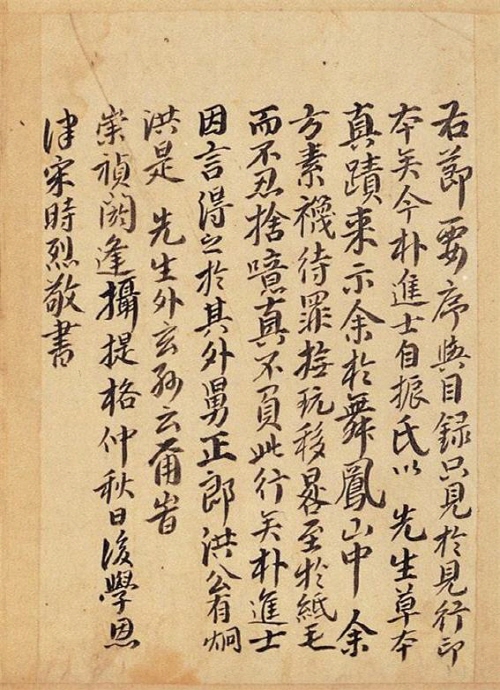 右節要序與目録只見於見行印
夲矣今朴進士自振氏以 先生草夲
真蹟来示余於舞鳳山中 余
方素襪待罪撫玩移晷至於紙毛
而不忍捨噫真不負此行矣朴進士
因言得之於其外舅正郎洪公有炯
洪是 先生外玄孫云爾旹
崇禎閼逢攝提格仲秋日後學恩
津宋時烈敬書